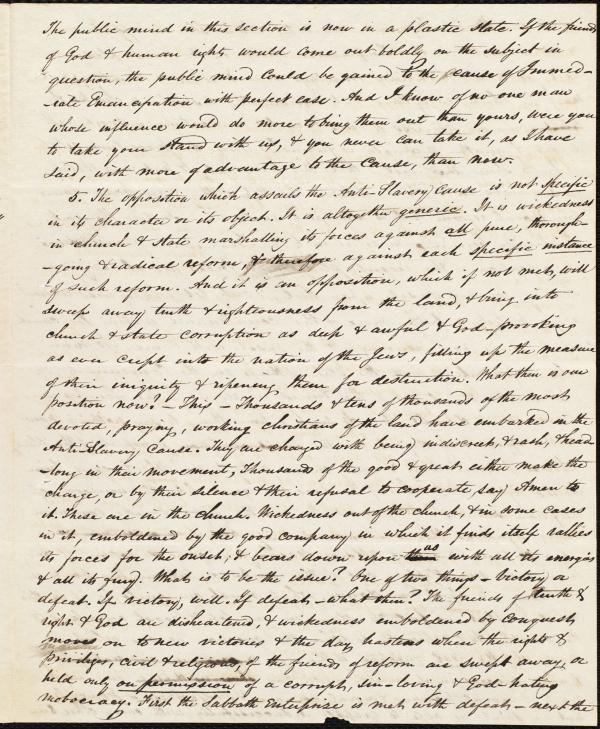 The public mind in this section is now in a plastic state. If the friends
of God & human rights would come out boldly on the subject in
question, the public mind could be gained to the cause of Immed-
-iate Emancipation with perfect ease. And I know of no one man
whose influence would do more to bring them out than yours, were you
to take your stand with us, & you never can take it, as I have
said, with more of advantage to the Cause, than now.
5. The opposition which assails the Anti-Slavery Cause is not specific
in its character or its object. It is altogether generic. It is wickedness
in church & state marshalling its forces against all pure, thorough-
-going & radical reform, & therefore against each specific instance
of such reform. And it is an opposition, which if not met, will
sweep away truth & righteousness from the land, & bring into
church & state corruption as deep & awful & God-provoking
as ever crept into the nation of the Jews, filling up the measure
of their iniquity & ripening them for destruction. What then is our
position now? - This - Thousands & tens of thousands of the most
devoted, praying, working christians of the land have embarked in the
Anti-Slavery Cause. They are charged with being indiscreet, & rash, & head-
-long in their movement, Thousands of the good & great either make the
charge, or by their silence & their refusal to cooperate, say Amen to
it. These are in the church. Wickedness out of the church, & in some cases
in it, emboldened by the good company in which it finds itself rallies
its forces for the onset, & bears down upon us with all its energies
& all its fury. What is to be the issue? One of two things - Victory or
defeat. If victory, well. If defeat, - what then? The friends of truth &
right & God are disheartened, & wickedness emboldened by conquest,
moves on to new victories & the day hastens when the rights &
privileges, civil & religious, of the friends of reform are swept away, or
held only on permission of a corrupt, sin-loving & God-hating
mobocracy. First the Sabbath Enterprise is met with defeat - next the